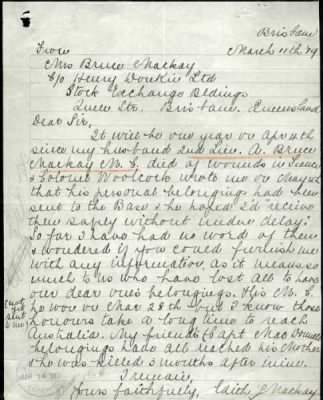 Brisbane
March 11th '19
From
Mrs Bruce Mackay
C/o Henry Donkin Ltd
Stock Exchange Bldings
Queen Str. Brisbane. Queensland
Dear Sir,
It will be one year on Apr 4th
since my husband 2nd Lieu. A. Bruce
Mackay M. C. died of wounds in France
& Colonel Woolcock wrote me on May
that his personal belongings had been
sent to the Base & he hoped I'd "receive
them safely without undue delay."
So far I have had no word of them
& wondered if you could furnish me
with any information, as it means so
much to us who have lost all to have
our dear one's belongings. His M. C.
he won on Mar 28th but I know those
honours take a long time to reach
Australia. My friends (Capt MacDonnell
belongings have all reached his Mother
& he was killed 3 months after mine.
I remain,
Yours faithfully, Edith J Mackay
(not yet sent to me)